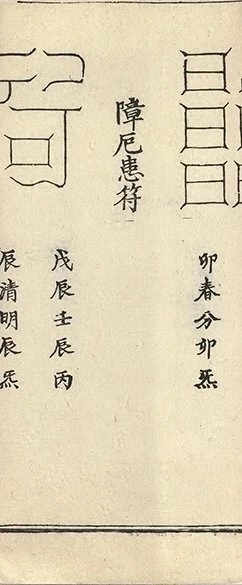 卯春分卯炁
障厄患符
戊辰壬辰丙
辰清明辰炁